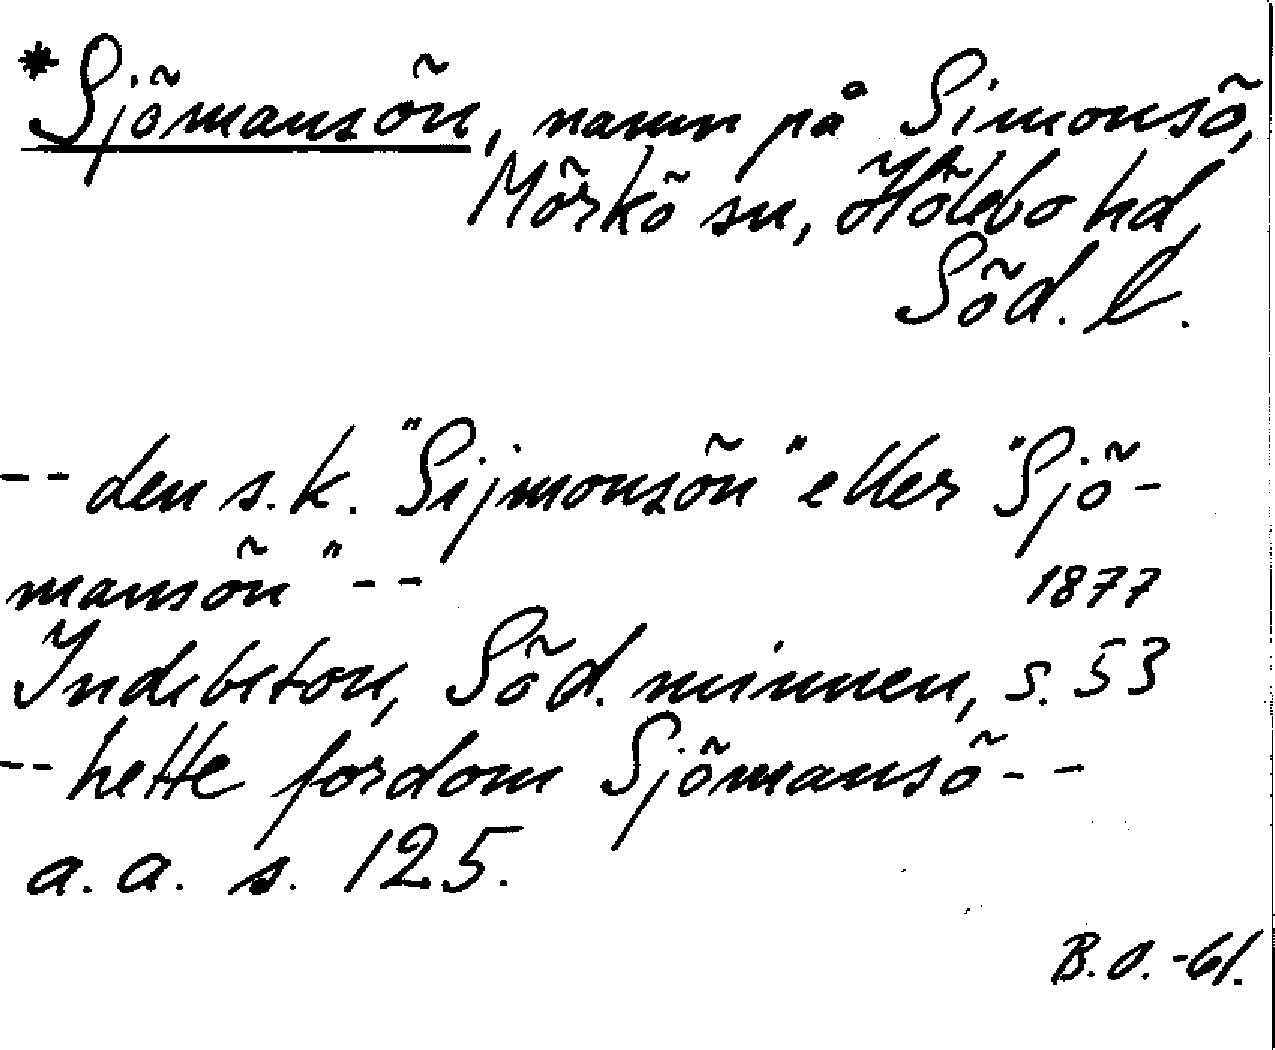 *Sjömansön, namn på Simonsö,
Mörkö sn, Hölebo hd,
Söd. l.
-- den s.k. "Sijmonsön" eller "Sjö-
mansön" --
1877
Indebetou, Söd. minnen, s. 53
-- hette fordom Sjömansö --
a.a. s. 125.
B.O. -61.